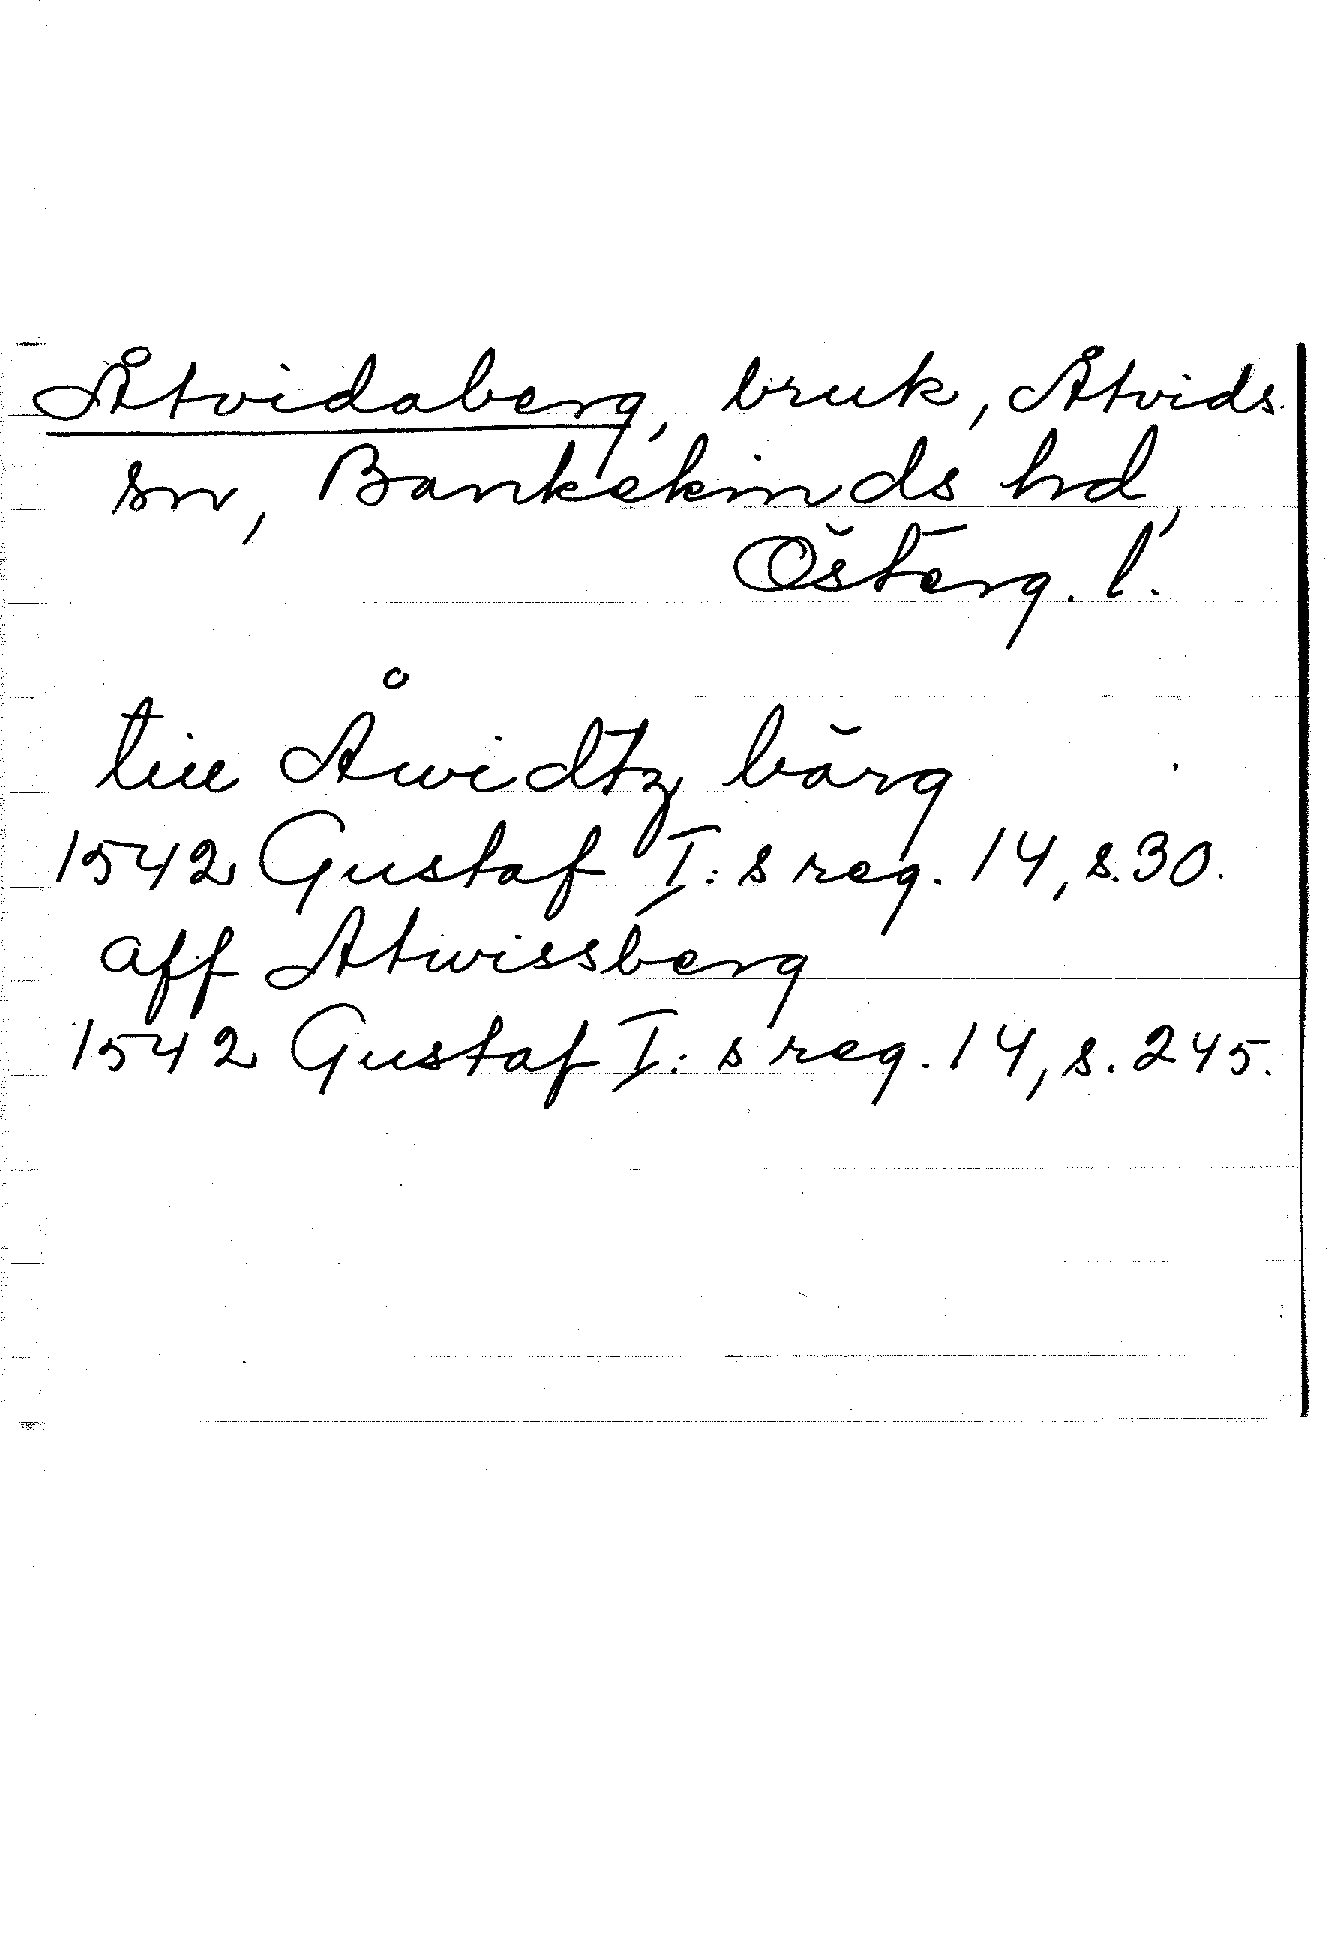 Åtvidaberg, bruk, Åtvids
sn, Bankekinds hd,
Österg. l.
till Åwidtz bärg
1542 Gustaf I:s reg. 14, s. 30.
aff Atwissberg
1542 Gustaf I:s reg. 14, s. 245.